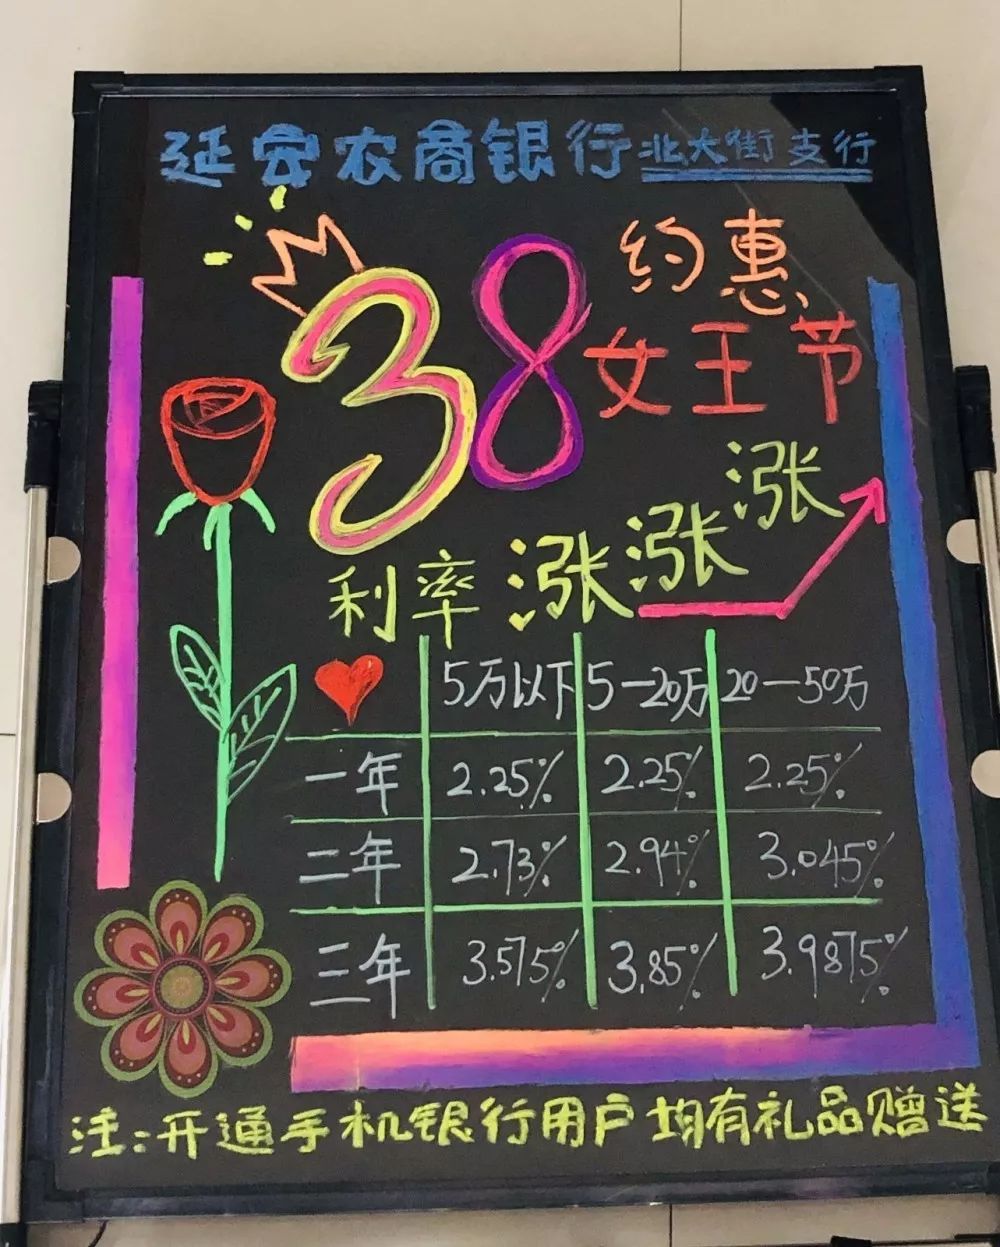 延安农商银行 北大街支行
38 约惠
女王节
利率涨涨涨
5万以下 5—20万 20—50万
一年 2.25% 2.25% 2.25%
二年 2.73% 2.94% 3.045%
三年 3.575% 3.85% 3.9875%
注:开通手机银行用户均有礼品赠送